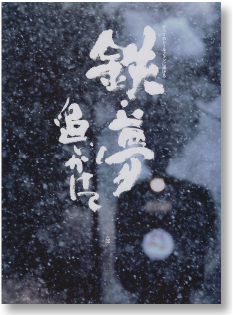 鉄・夢
追いかけて